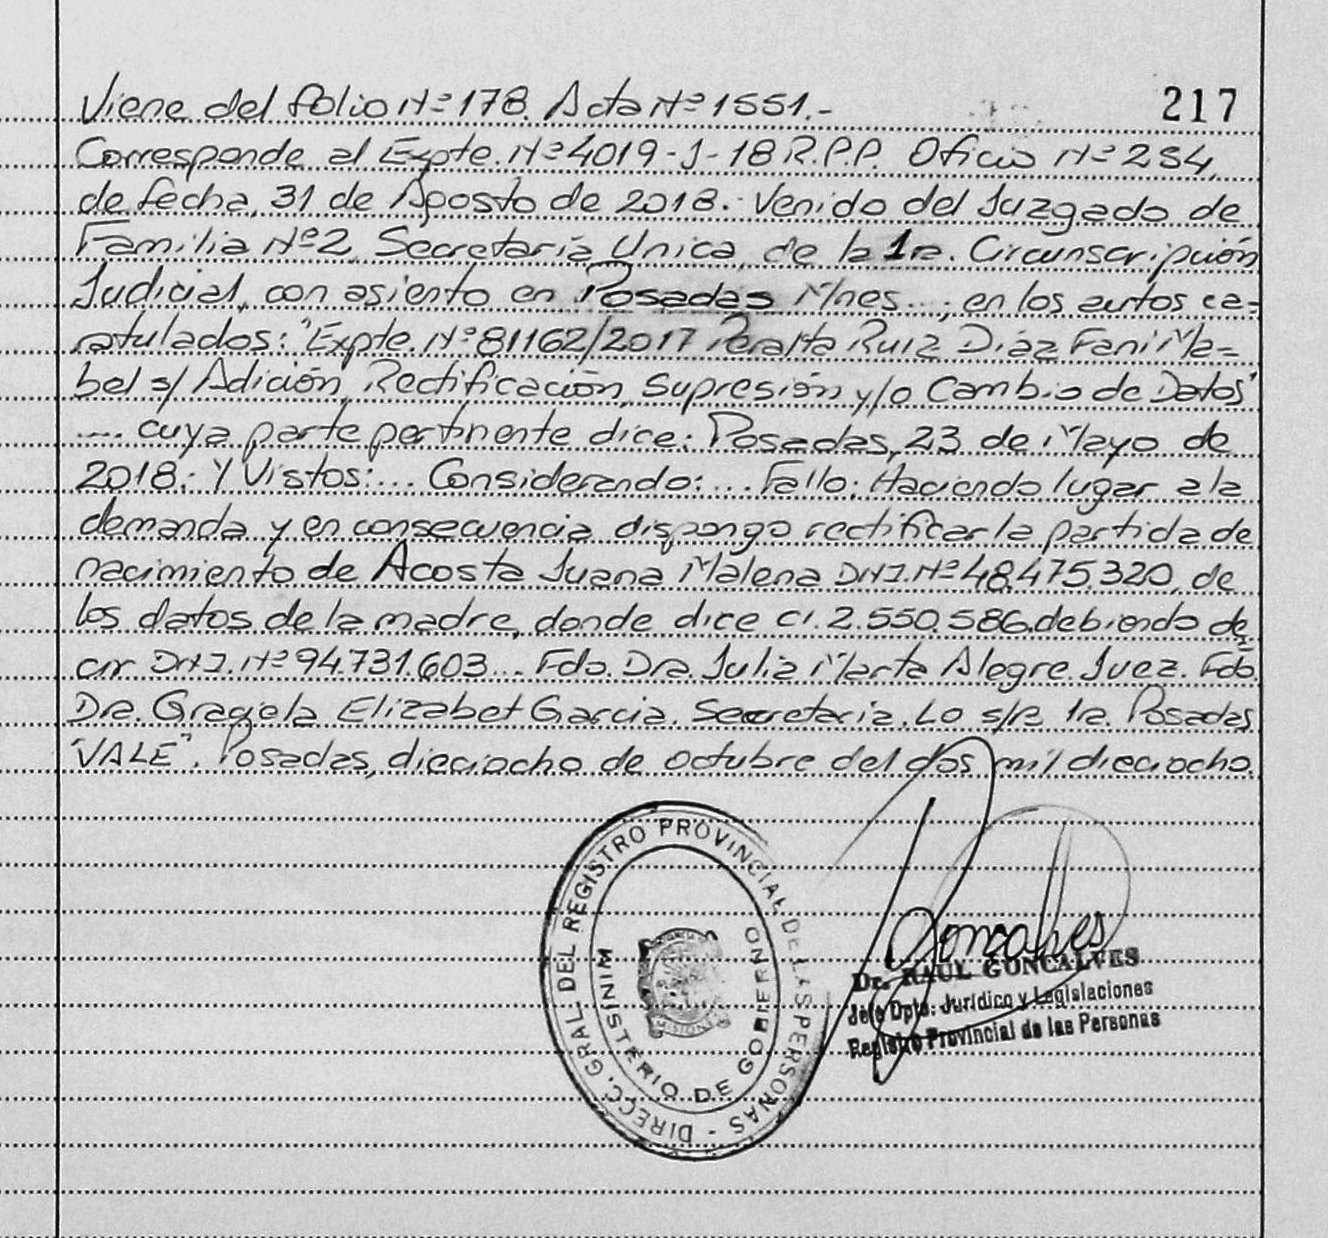 217
Viene del folio Nº 178. Acta Nº 1551.-
Corresponde al Expte. Nº 4019-J-18 R.P.P. Oficio Nº 284,
de fecha, 31 de Agosto de 2018.- Venido del Juzgado de
Familia Nº 2, Secretaría Unica, de la 1ra. Circunscripción
Judicial, con asiento en Posadas Mnes...; en los autos ca-
ratulados: "Expte. Nº 81162/2017 Peralta Ruiz Diaz Fani Ma-
bel s/ Adición, Rectificación, Supresión y/o Cambio de Datos"
.... cuya parte pertinente dice: Posadas, 23 de Mayo de
2018: Y Vistos:... Considerando:... Fallo: Haciendo lugar a la
demanda y en consecuencia dispongo rectificar la partida de
nacimiento de Acosta Juana Malena DNI. Nº 48.475.320, de
los datos de la madre, donde dice CI. 2.550.586. debiendo de-
cir DNI. Nº 94.731.603... Fdo. Dra. Julia Marta Alegre. Juez. Fdo.
Dra. Graciela Elizabet Garcia. Secretaria. Lo s/R 1ra. Posadas
"VALE". Posadas, dieciocho de octubre del dos mil dieciocho.
DIRECC. GRAL DEL REGISTRO PROVINCIAL DE LAS PERSONAS -
MINISTERIO DE GOBIERNO
Goncalves
Dr. RAUL GONCALVES
Jefe Dpto. Jurídico y Legislaciones
Registro Provincial de las Personas